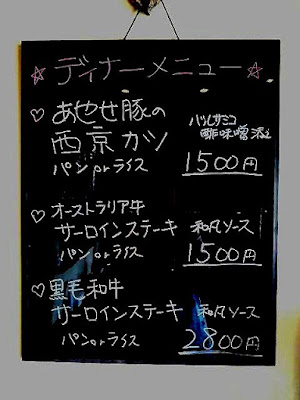 ☆ ディナーメニュー ☆
♡ あやせ豚の
西京カツ
バルサミコ
酢味噌添え
パンorライス
1500円
♡ オーストラリア牛
サーロインステーキ 和風ソース
パンorライス
1500円
♡ 黒毛和牛
サーロインステーキ 和風ソース
パンorライス
2800円